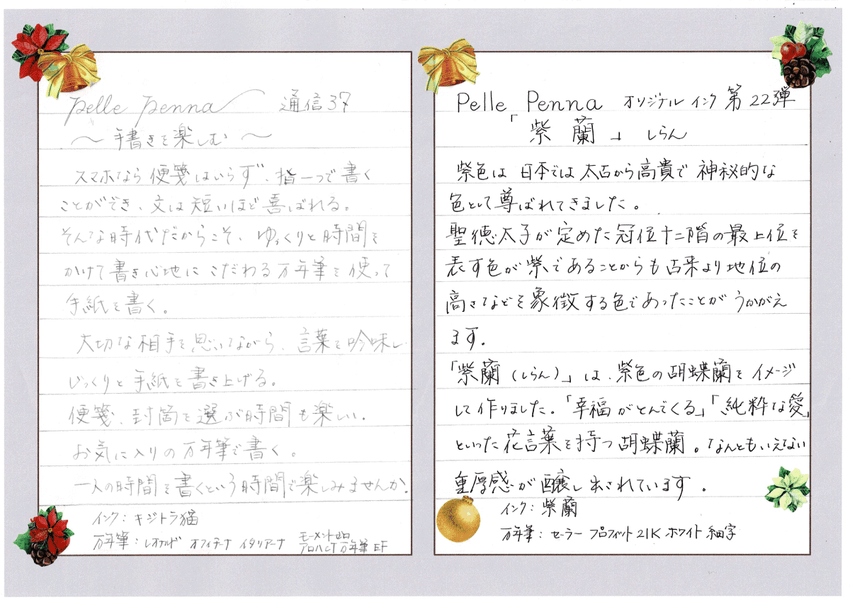 Pelle Penna 通信37
〜 手書きを楽しむ 〜
スマホなら便箋はいらず、指一つで書く
ことができ、文は短いほど喜ばれる。
そんな時代だからこそ、ゆっくりと時間を
かけて書き心地にこだわる万年筆を使って
手紙を書く。
大切な相手を思いながら、言葉を吟味し
じっくりと手紙を書き上げる。
便箋、封筒を選ぶ時間も楽しい。
お気に入りの万年筆で書く。
一人の時間を書くという時間で楽しみませんか。
インク：キジトラ猫
万年筆：レオナルド オフィチーナ イタリアーナ モーメントゼロ
万年筆 EF
Pelle Penna オリジナル インク 第22弾
「紫蘭」しらん
紫色は日本では太古から高貴で神秘的な
色として尊ばれてきました。
聖徳太子が定めた冠位十二階の最上位を
表す色が紫であることからも古来より地位の
高さなどを象徴する色であったことがうかがえ
ます。
「紫蘭（しらん）」は、紫色の胡蝶蘭をイメージ
して作りました。「幸福がとんでくる」「純粋な愛」
といった花言葉を持つ胡蝶蘭。なんともいえない
重厚感が醸し出されています。
インク：紫蘭
万年筆：セーラー プロフィット21K ホワイト 細字